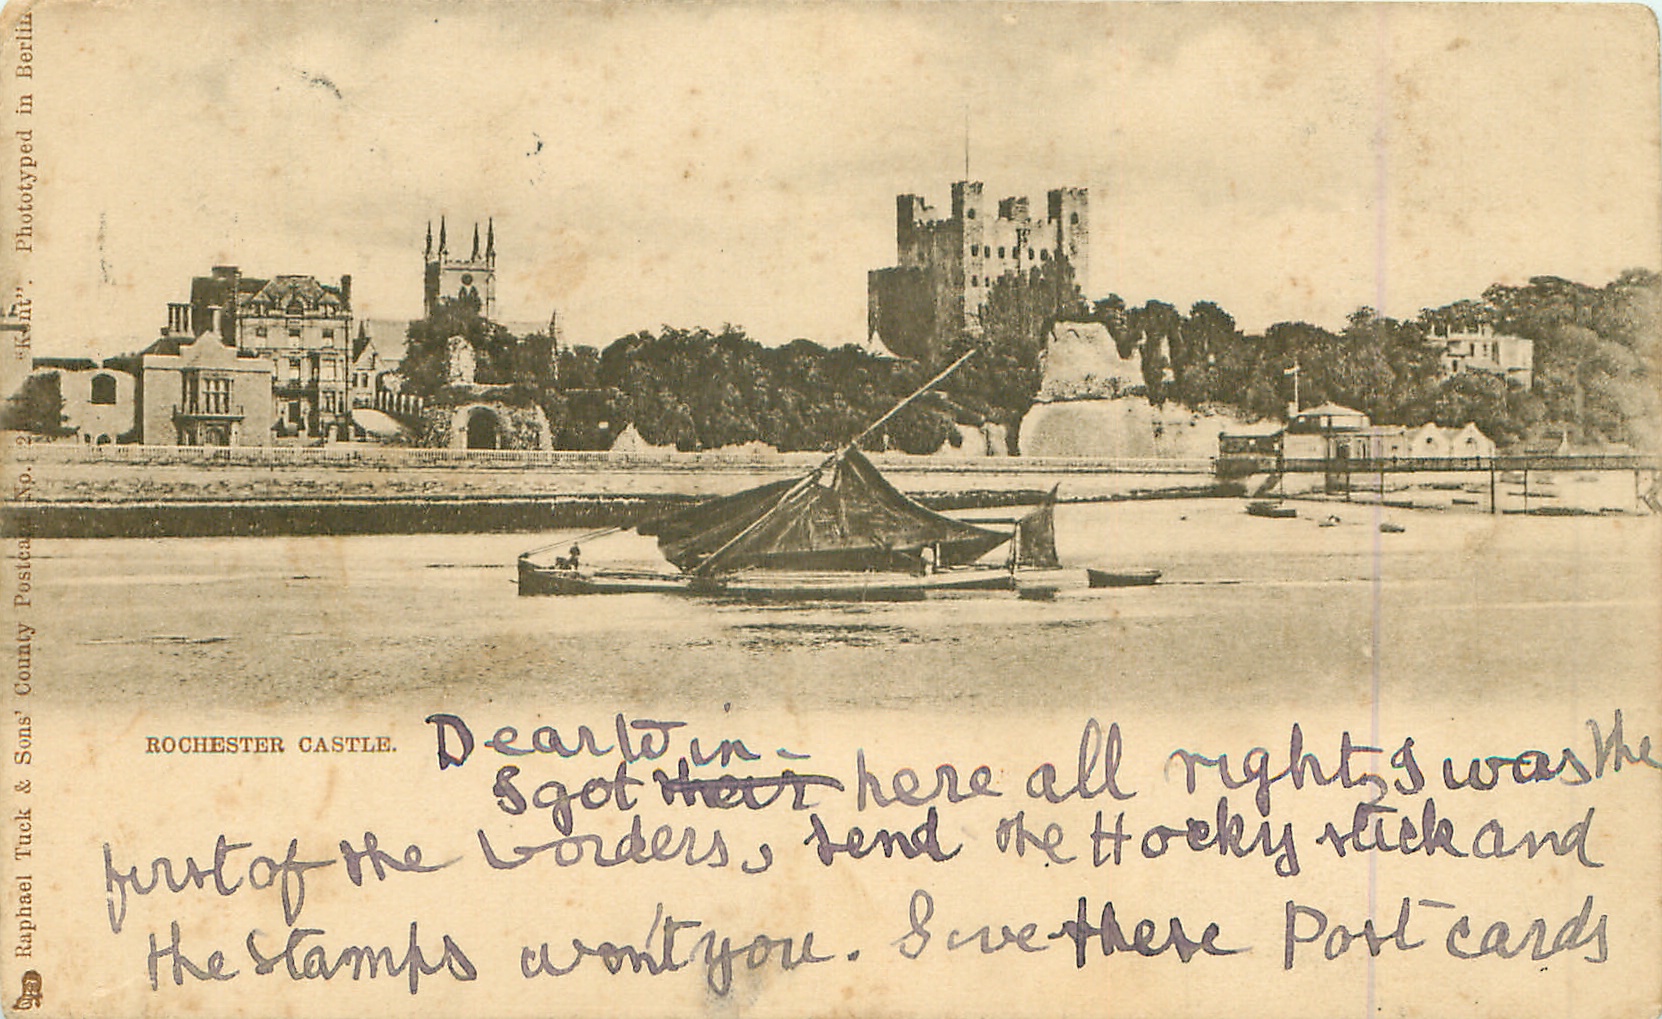 Raphael Tuck & Sons' County Postcard No. 2 "Kent". Phototyped in Berlin
ROCHESTER CASTLE.
Dear Win -
I got here all right, I was the
first of the borders, send the Hocky stick and
the stamps won't you. Give these Post cards